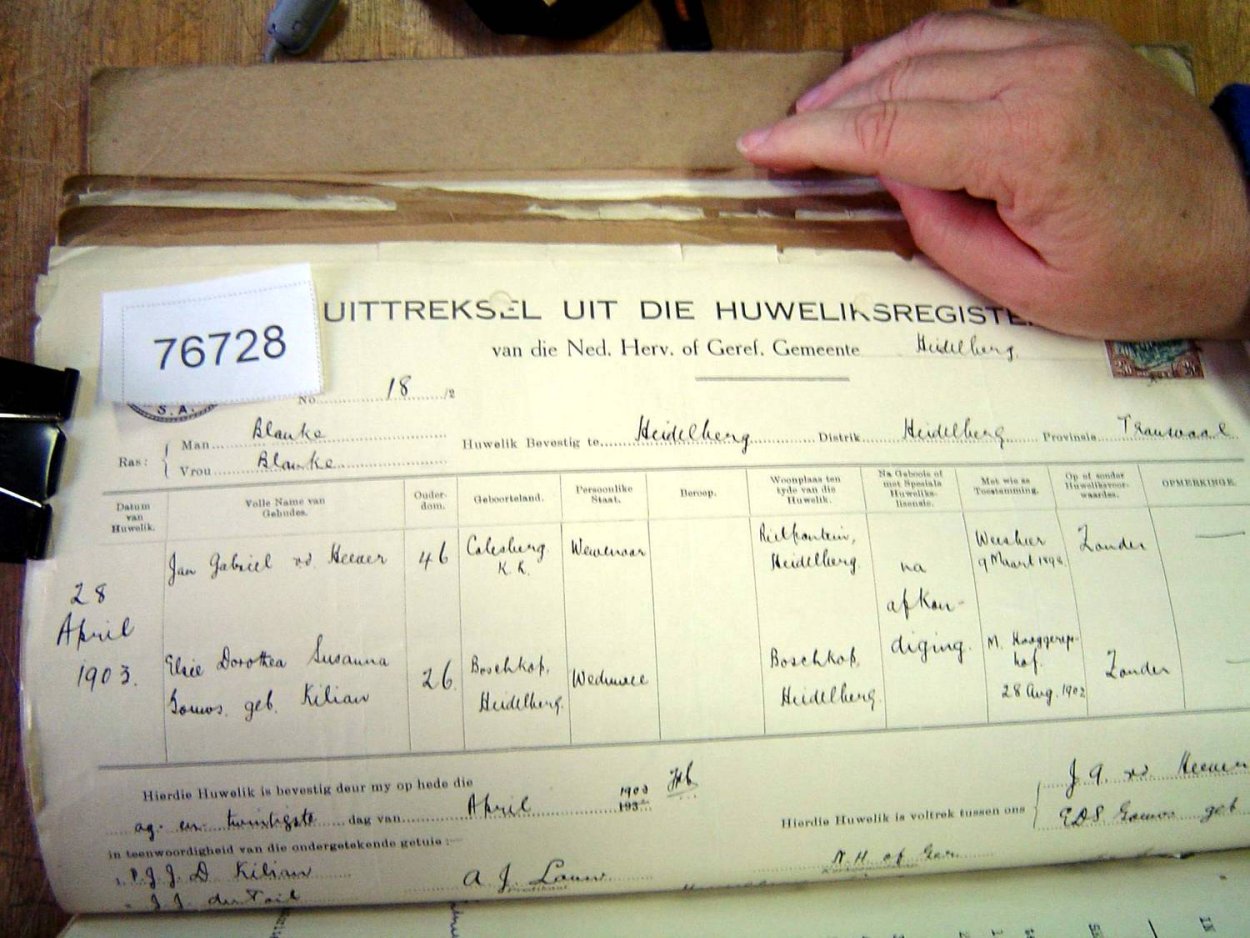 76728
UITTREKSEL UIT DIE HUWELIKSREGISTE
van die Ned. Herv. of Geref. Gemeente Heidelberg.
S.A.
No. 18 /2
Ras: Man Blanke
Vrou Blanke
Huwelik Bevestig te Heidelberg Distrik Heidelberg Provinsie Transvaal
Datum van Huwelik.
Volle Name van Gehudes.
Ouderdom.
Geboorteland.
Persoonlike Staat.
Beroep.
Woonplaas ten tyde van die Huwelik.
Na Gebooie of met Spesiale Huwelikslisensie.
Met wie se Toestemming.
Op of sonder Huweliksvoorwaardes.
OPMERKINGE.
28 April 1903.
Jan Gabriel vd Heever
46
Colesberg K.K.
Wewenaar
Rietfontein, Heidelberg
na afkondiging.
Weesheer 9 Maart 1898
Zonder
Elsie Dorothea Susanna
Gouws. geb. Kilian
26.
Boschkop, Heidelberg.
Weduwee
Boschkop, Heidelberg.
M. Hooggeregshof. 28 Aug. 1902
Zonder
Hierdie Huwelik is bevestig deur my op hede die
ag- en- twintigste dag van April 1903
in teenwoordigheid van die ondergetekende getuie:—
J. J. D Kilian
J. J. du Toit
A J. Louw
Predikant
N. H. of Ger.
Hierdie Huwelik is voltrek tussen ons
J. G. vd Heever
EDS Gouws geb